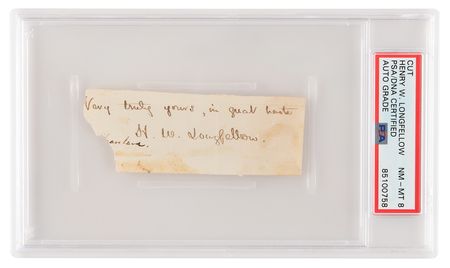 Very truly yours, in great haste
H. W. Longfellow.
CUT
HENRY W. LONGFELLOW
PSA/DNA CERTIFIED
AUTO GRADE
NM-MT 8
PSA
85100758